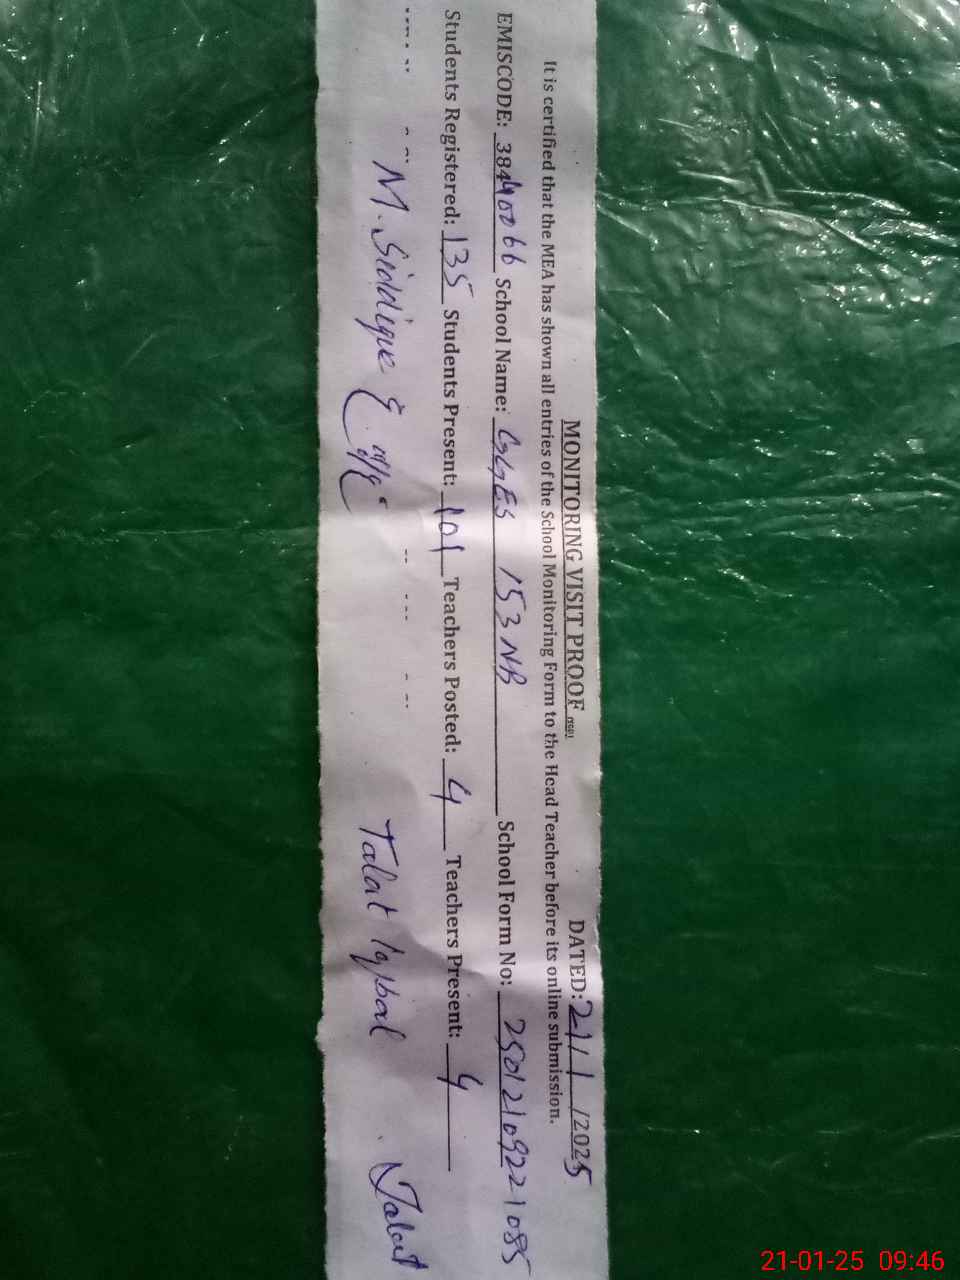 MONITORING VISIT PROOF DATED: 21/1/2025
It is certified that the MEA has shown all entries of the School Monitoring Form to the Head Teacher before its online submission.
EMISCODE: 38440066 School Name: GGES 153 NB School Form No: 25012109221085
Students Registered: 135 Students Present: 101 Teachers Posted: 4 Teachers Present: 4
M. Siddique Talat Iqbal Talat
21-01-25 09:46